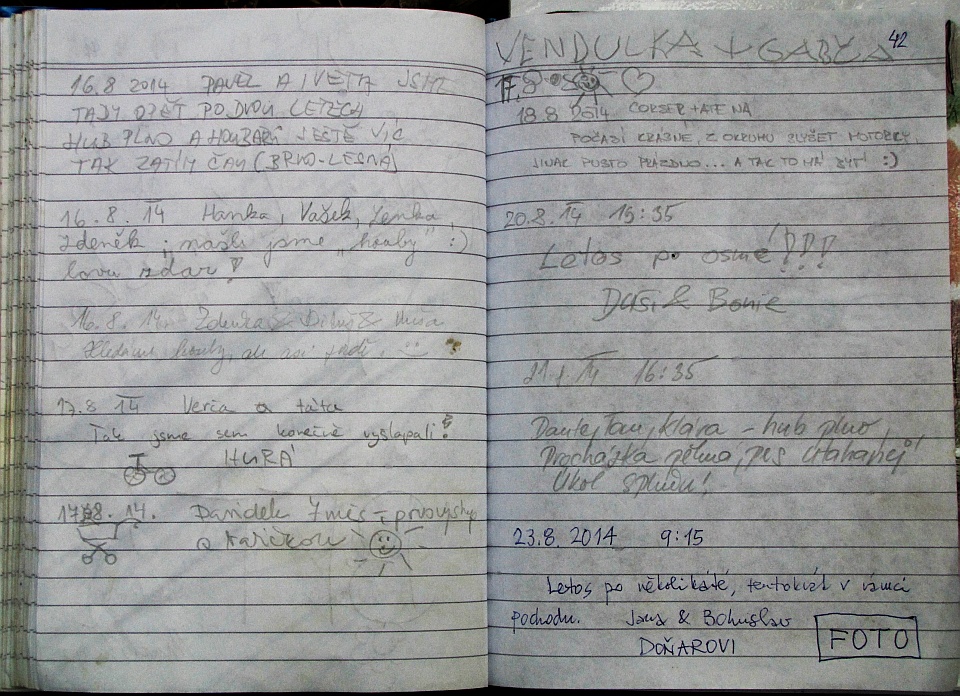 16.8 2014 PAVEL A IVETA JSME
TADY OPĚT PO DVOU LETECH
HUB PLNO A HOUBAŘŮ JEŠTĚ VÍC
TAK ZATÍM ČAU (BRNO-LESNÁ)
16.8. 14 Hanka, Vašek, Lenka,
Zdeněk ; našli jsme "houby" :)
lovu zdar!
16.8. 14. Zdenka & & Míša
Hledáme houby, ale asi
17.8 14 Verča a táta
Tak jsme sem konečně vyšlapali!
HURÁ
17.8. 14. Davídek 7 měs - prvovýstup
42
VENDULKA + GABČA
17.8
18.8 2014
POČASÍ KRÁSNÉ, Z OKRUHU SLYŠET MOTORKY,
JINAK PUSTO PRÁZDNO... A TAK TO MÁ BÝT :)
20.8. 14 15:35
Letos po osmé!!!
& Bonie
21. 14 16:35
Klára - hub plno,
Procházka pěkná, pes utahaný!
Úkol splněn!
23.8. 2014 9:15
Letos po několikáté, tentokrát v rámci
pochodu. Jana & Bohuslav
DOŇAROVI
FOTO